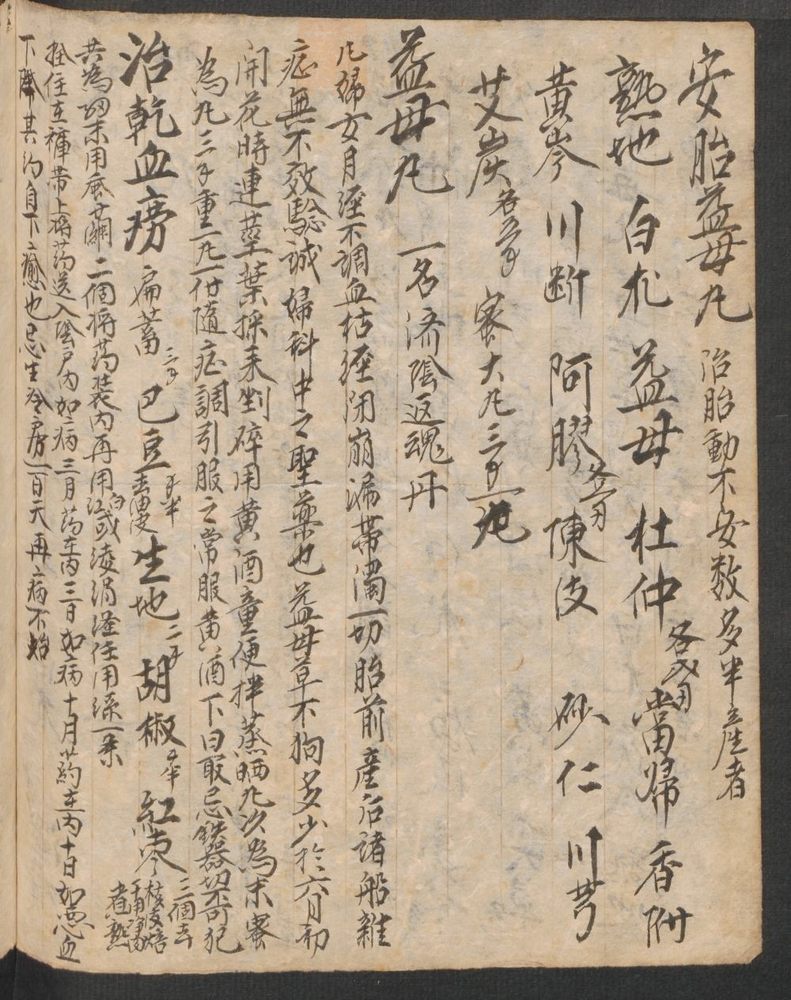 安胎益母丸 治胎動不安数多半產者
熟地 白朮 益母 杜仲 各 當歸 香附
黃岑 川断 阿膠 陳皮 砂仁 川芎
艾炭 蜜大丸三錢一丸
益母丸 一名濟陰返魂丹
凡婦女月經不調血枯經闭崩漏帶濁一切胎前產后諸般雜
症無不效驗誠婦科中之聖藥也益母草不狗多少於六月初
開花時連莖葉採來剉碎用黃酒童便拌蒸晒九次為末蜜
為丸三錢重一丸一付隨症調引服之常服黃酒下日取忌鐵器切不可犯
治乾血癆 扁蓄 三錢 巴豆 生地 二錢 胡椒 紅棗 三個去核
共為細末用蚕繭二個將葯裝内再用紅白或綾絹裹住用線一条
拴住在褲帶上將葯送入陰户内如病三月葯在内三日如病十月葯在内十日如惡血
下降其葯自下癒也忌生冷房一百天再病不治